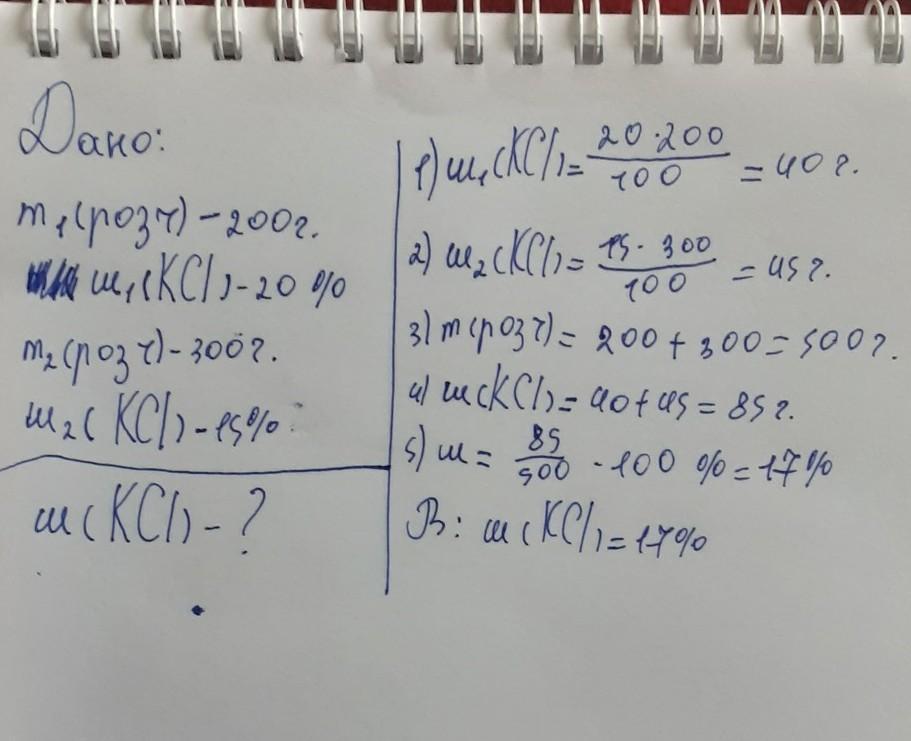 Дано:
m₁(розч) - 200г.
ш₁(KCl) - 20 %
m₂(розч) - 300г.
ш₂(KCl) - 15%
ш(KCl) - ?
1) ш₁(KCl) = 20·200/100 = 40 г.
2) ш₂(KCl) = 15·300/100 = 45 г.
3) m(розч) = 200 + 300 = 500 г.
4) ш(KCl) = 40 + 45 = 85 г.
5) ш = 85/500 · 100 % = 17%
В: ш(KCl) = 17%